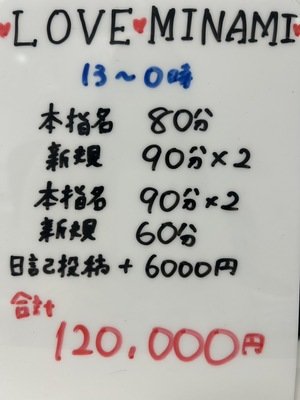 ♥LOVE♥MINAMI♥
13〜0時
本指名 80分
新規 90分×2
本指名 90分×2
新規 60分
日記投稿 + 6000円
合計
120,000円